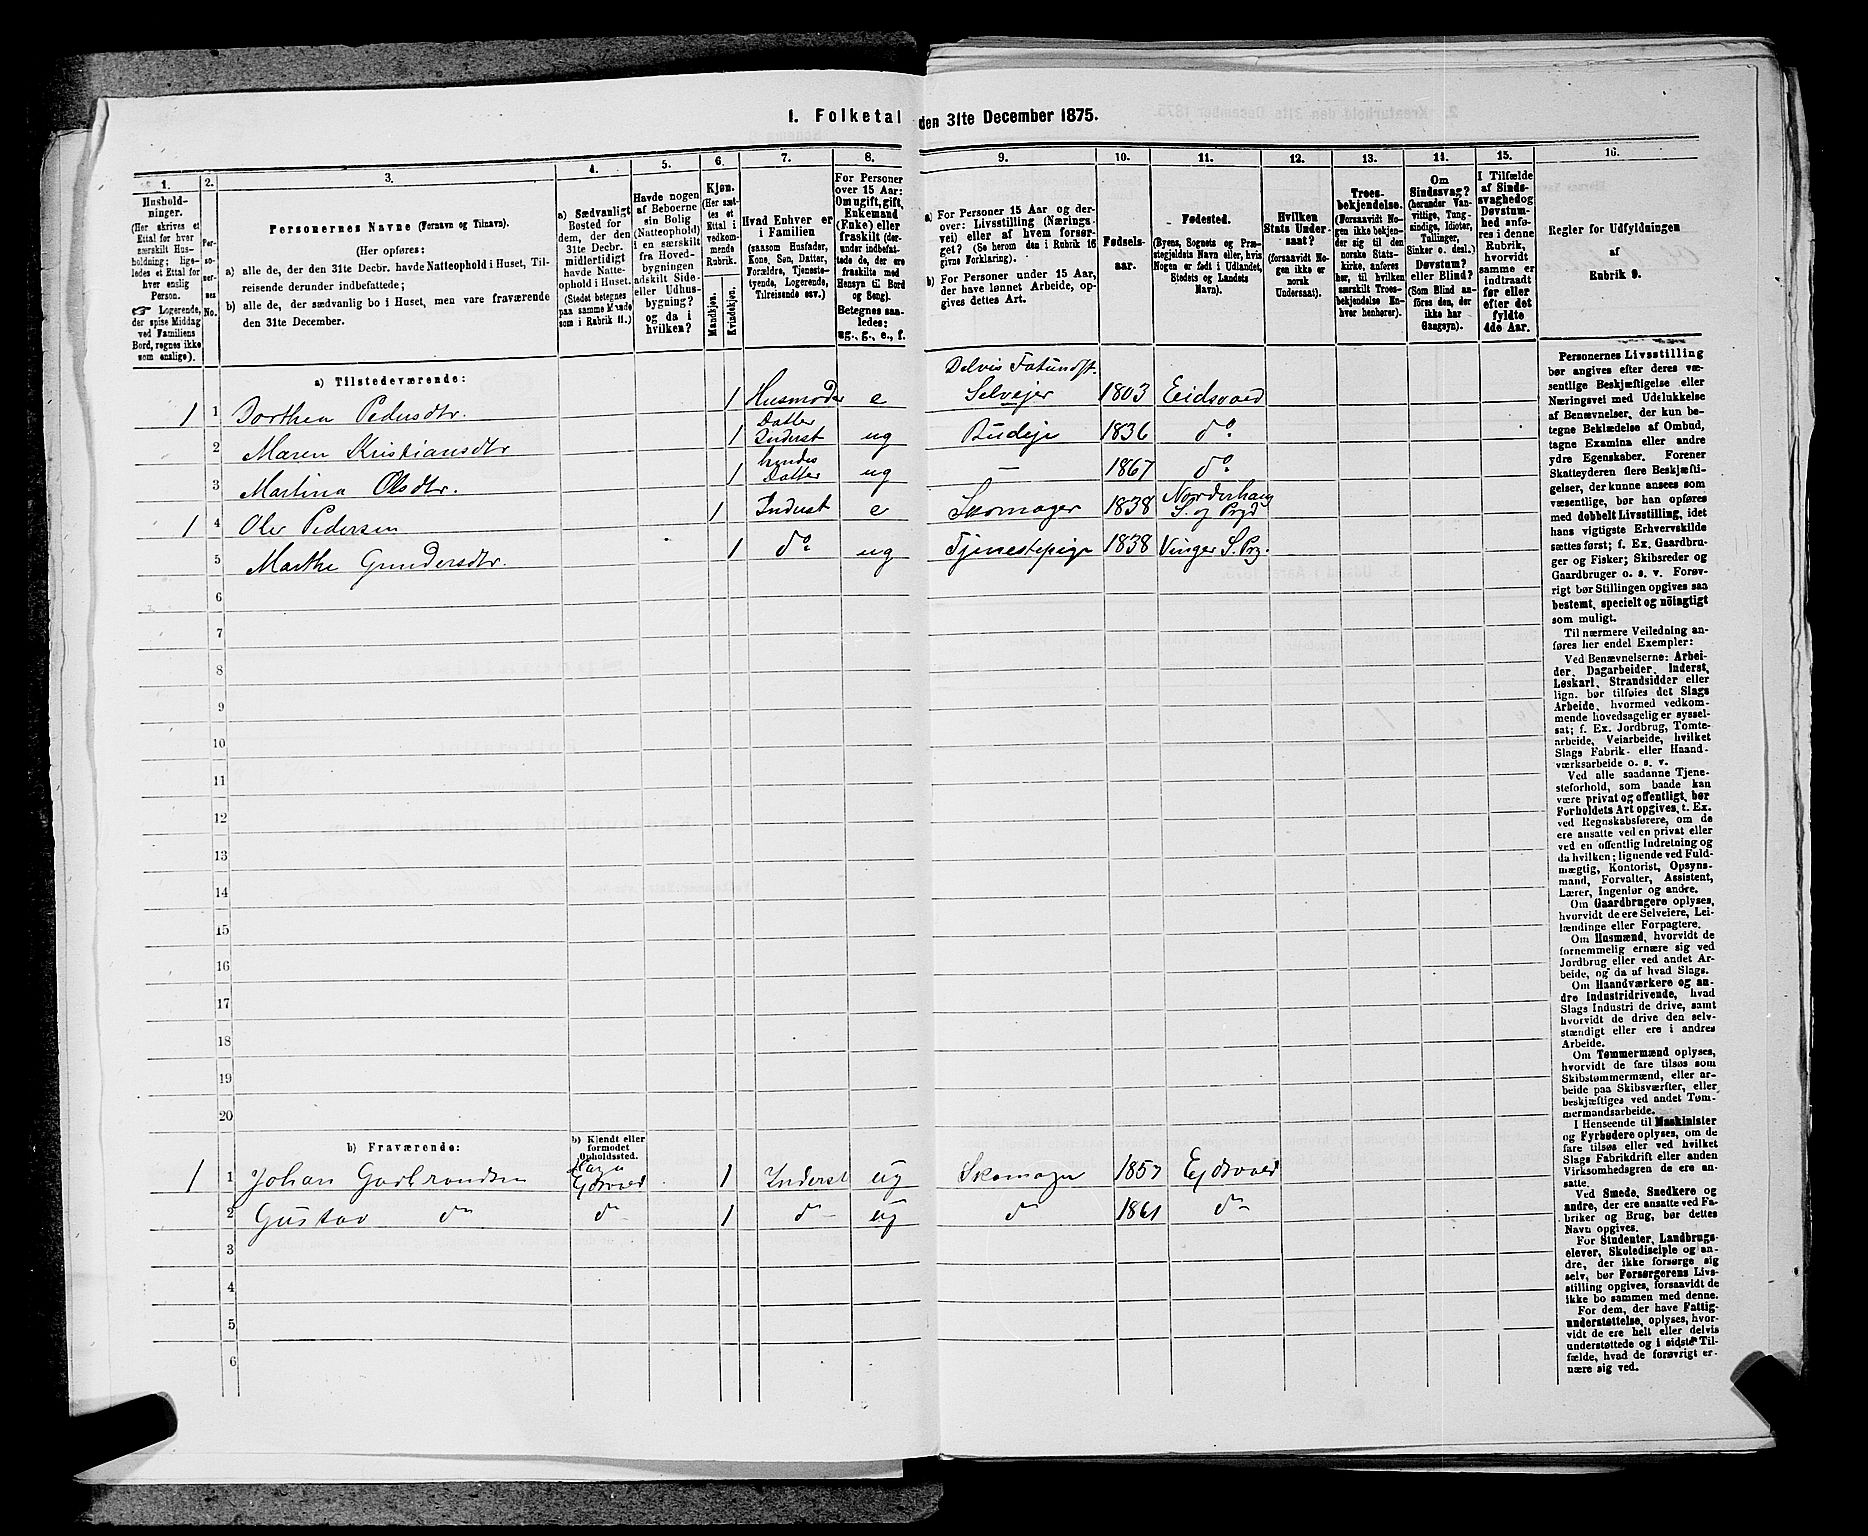 I. Folketal den 31te December 1875.
1. 2. 3. 4. 5. 6. 7. 8. 9. 10. 11. 12. 13. 14. 15. 16.
Husholdninger.
(Her skrives et Ettal for hver særskilt Husholdning; ligeledes et Ettal for hver enslig Person.
☞ Logerende, der spise Middag ved Familiens Bord, regnes ikke som enslige).
Personernes No.
Personernes Navne (Fornavn og Tilnavn).
(Her opføres:
a) alle de, der den 31te Decbr. havde Natteophold i Huset, Tilreisende derunder indbefattede;
b) alle de, der sædvanlig bo i Huset, men vare fraværende den 31te December.
a) Sædvanligt Bosted for dem, der den 31te Decbr. midlertidigt havde Natteophold i Huset. (Stedet betegnes paa samme Maade som i Rubrik 11.)
Havde nogen af Beboerne sin Bolig (Natteophold) i en særskilt fra Hovedbygningen adskilt Side- eller Udhusbygning? og da i hvilken?
Kjøn. (Her sættes et Ettal i vedkommende Rubrik.
Mandkjøn. Kvindekjøn.
Hvad Enhver er i Familien (saasom Husfader, Kone, Søn, Datter, Forældre, Tjenestetyende, Logerende, Tilreisende osv.)
For Personer over 15 Aar: Om ugift, gift, Enkemand (Enke) eller fraskilt (derunder indbefattede de, der ere fraskilte med Hensyn til Bord og Seng). Betegnes saaledes: ug., g., e., f.
a) For Personer 15 Aar og derover: Livsstilling (Næringsvei) eller af hvem forsørget? (Se herom den i Rubrik 16 givne Forklaring).
b) For Personer under 15 Aar, der have lønnet Arbeide, opgives dettes Art.
Fødselsaar.
Fødested.
(Byens, Sognets og Præstegjeldets Navn eller, hvis Nogen er født i Udlandet, Stedets og Landets Navn).
Hvilken Stats Undersaat? (forsaavidt Nogen ikke er norsk Undersaat).
Troesbekjendelse. (Forsaavidt Nogen ikke bekjender sig til den norske Statskirke, anføres her, til hvilken særskilt Troesbekjendelse Enhver henhører).
Om Sindssvag? (herunder Vanvittige, Tungsindige, Idioter, Tullinger, Sinker o. desl.). Døvstum? eller Blind? (Som Blind anføres den, der ikke har Gangsyn).
I Tilfælde af Sindssvaghed og Døvstumhed anføres i denne Rubrik, hvorvidt samme er indtraadt før eller efter det fyldte 4de Aar.
Regler for Udfyldningen af Rubrik 9.
a) Tilstedeværende:
Delvis Fatundst.
1 1 Dorthea Pedersdtr. 1 Husmoder e Selvejer 1803 Eidsvold
2 Maren Kristiansdtr 1 Datter Inderst ug Budeje 1836 do
3 Martina Olsdtr. 1 hendes Datter ug — 1867 do
1 4 Ole Pedersen 1 Inderst e Skomager 1838 Norderhaug S. og Prgd
5 Marthe Gundersdtr. 1 do ug Tjenestepige 1838 Vinger S. Prg.
6
7
8
9
10
11
12
13
14
15
16
17
18
19
20
b) Fraværende:
b) Kjendt eller formodet Opholdssted.
1 1 Johan Gulbrandsen Eidsvold 1 Inderst ug Skomager 1857 Ejdsvold
2 Gustav do do 1 do ug do 1861 do
3
4
5
6
Personernes Livsstilling
bør angives efter deres væ-
sentlige Beskjæftigelse eller
Næringsvei med Udelukkelse
af Benævnelser, der kun be-
tegne Beklædelse af Ombud,
tagne Examina eller andre
ydre Egenskaber. Forener
Skatteyderen flere Beskjæfti-
gelser, der kunne ansees som
væsentlige, bør han opføres
med dobbelt Livsstilling, idet
hans vigtigste Erhvervskilde
sættes først; f. Ex. Gaardbru-
ger og Fisker; Skibsreder og
Gaardbruger o. s. v. Forøv-
rigt bør Stillingen opgives saa
bestemt, specielt og nöiagtigt
som muligt.
Til nærmere Veiledning an-
føres her endel Exempler:
Ved Benævnelserne: Arbei-
der, Dagarbeider, Inderst,
Løskarl, Strandsidder eller
lign. bør tilføies det Slags
Arbeide, hvormed vedkom-
mende hovedsagelig er syssel-
sat; f. Ex. Jordbrug, Tomte-
arbeide, Veiarbeide, hvilket
Slags Fabrik- eller Haand-
værksarbeide o. s. v.
Ved alle saadanne Tjene-
steforhold, som baade kan
være privat og offentligt, bør
Forholdets Art opgives, t. Ex.
ved Regnskabsførere, om de
ere ansatte ved en privat eller
ved en offentlig Indretning og
da hvilken; lignende ved Fuld-
mægtig, Kontorist, Opsyns-
mand, Forvalter, Assistent,
Lærer, Ingeniør og andre.
Om Gaardbrugere oplyses,
hvorvidt de ere Selveiere, Lei-
lændinge eller Forpagtere.
Om Husmænd, hvorvidt de
fornemmelig ernære sig ved
Jordbrug eller ved andet Ar-
beide, og da af hvad Slags.
Om Haandværkere og an-
dre Industridrivende, hvad
Slags Industri de drive, samt
hvorvidt de drive den selv-
stændigt eller ere i andres
Arbeide.
Om Tømmermænd oplyses,
hvorvidt de fare tilsøs som
Skibstømmermænd, eller ar-
beide paa Skibsværfter, eller
beskjæftiges ved andet Tøm-
mermandsarbeide.
I Henseende til Maskinister
og Fyrbødere oplyses, om de
fare tilsøs eller ved hvilket
Slags Fabrikdrift eller anden
Virksomhedsgren de ere an-
satte.
Ved Smede, Snedkere og
andre, der ere ansatte ved Fa-
briker og Brug, bør dettes
Navn opgives.
For Studenter, Landbrugs-
elever, Skoledisciple og an-
dre, der ikke forsørge sig
selv, bør Forsørgerens Livs-
stilling opgives, forsaavidt de
ikke bo sammen med denne.
For dem, der have Fattig-
understøttelse, oplyses, hvor-
vidt de ere helt eller delvis
understøttede og i sidste Til-
fælde, hvad de forøvrigt er-
nære sig ved.